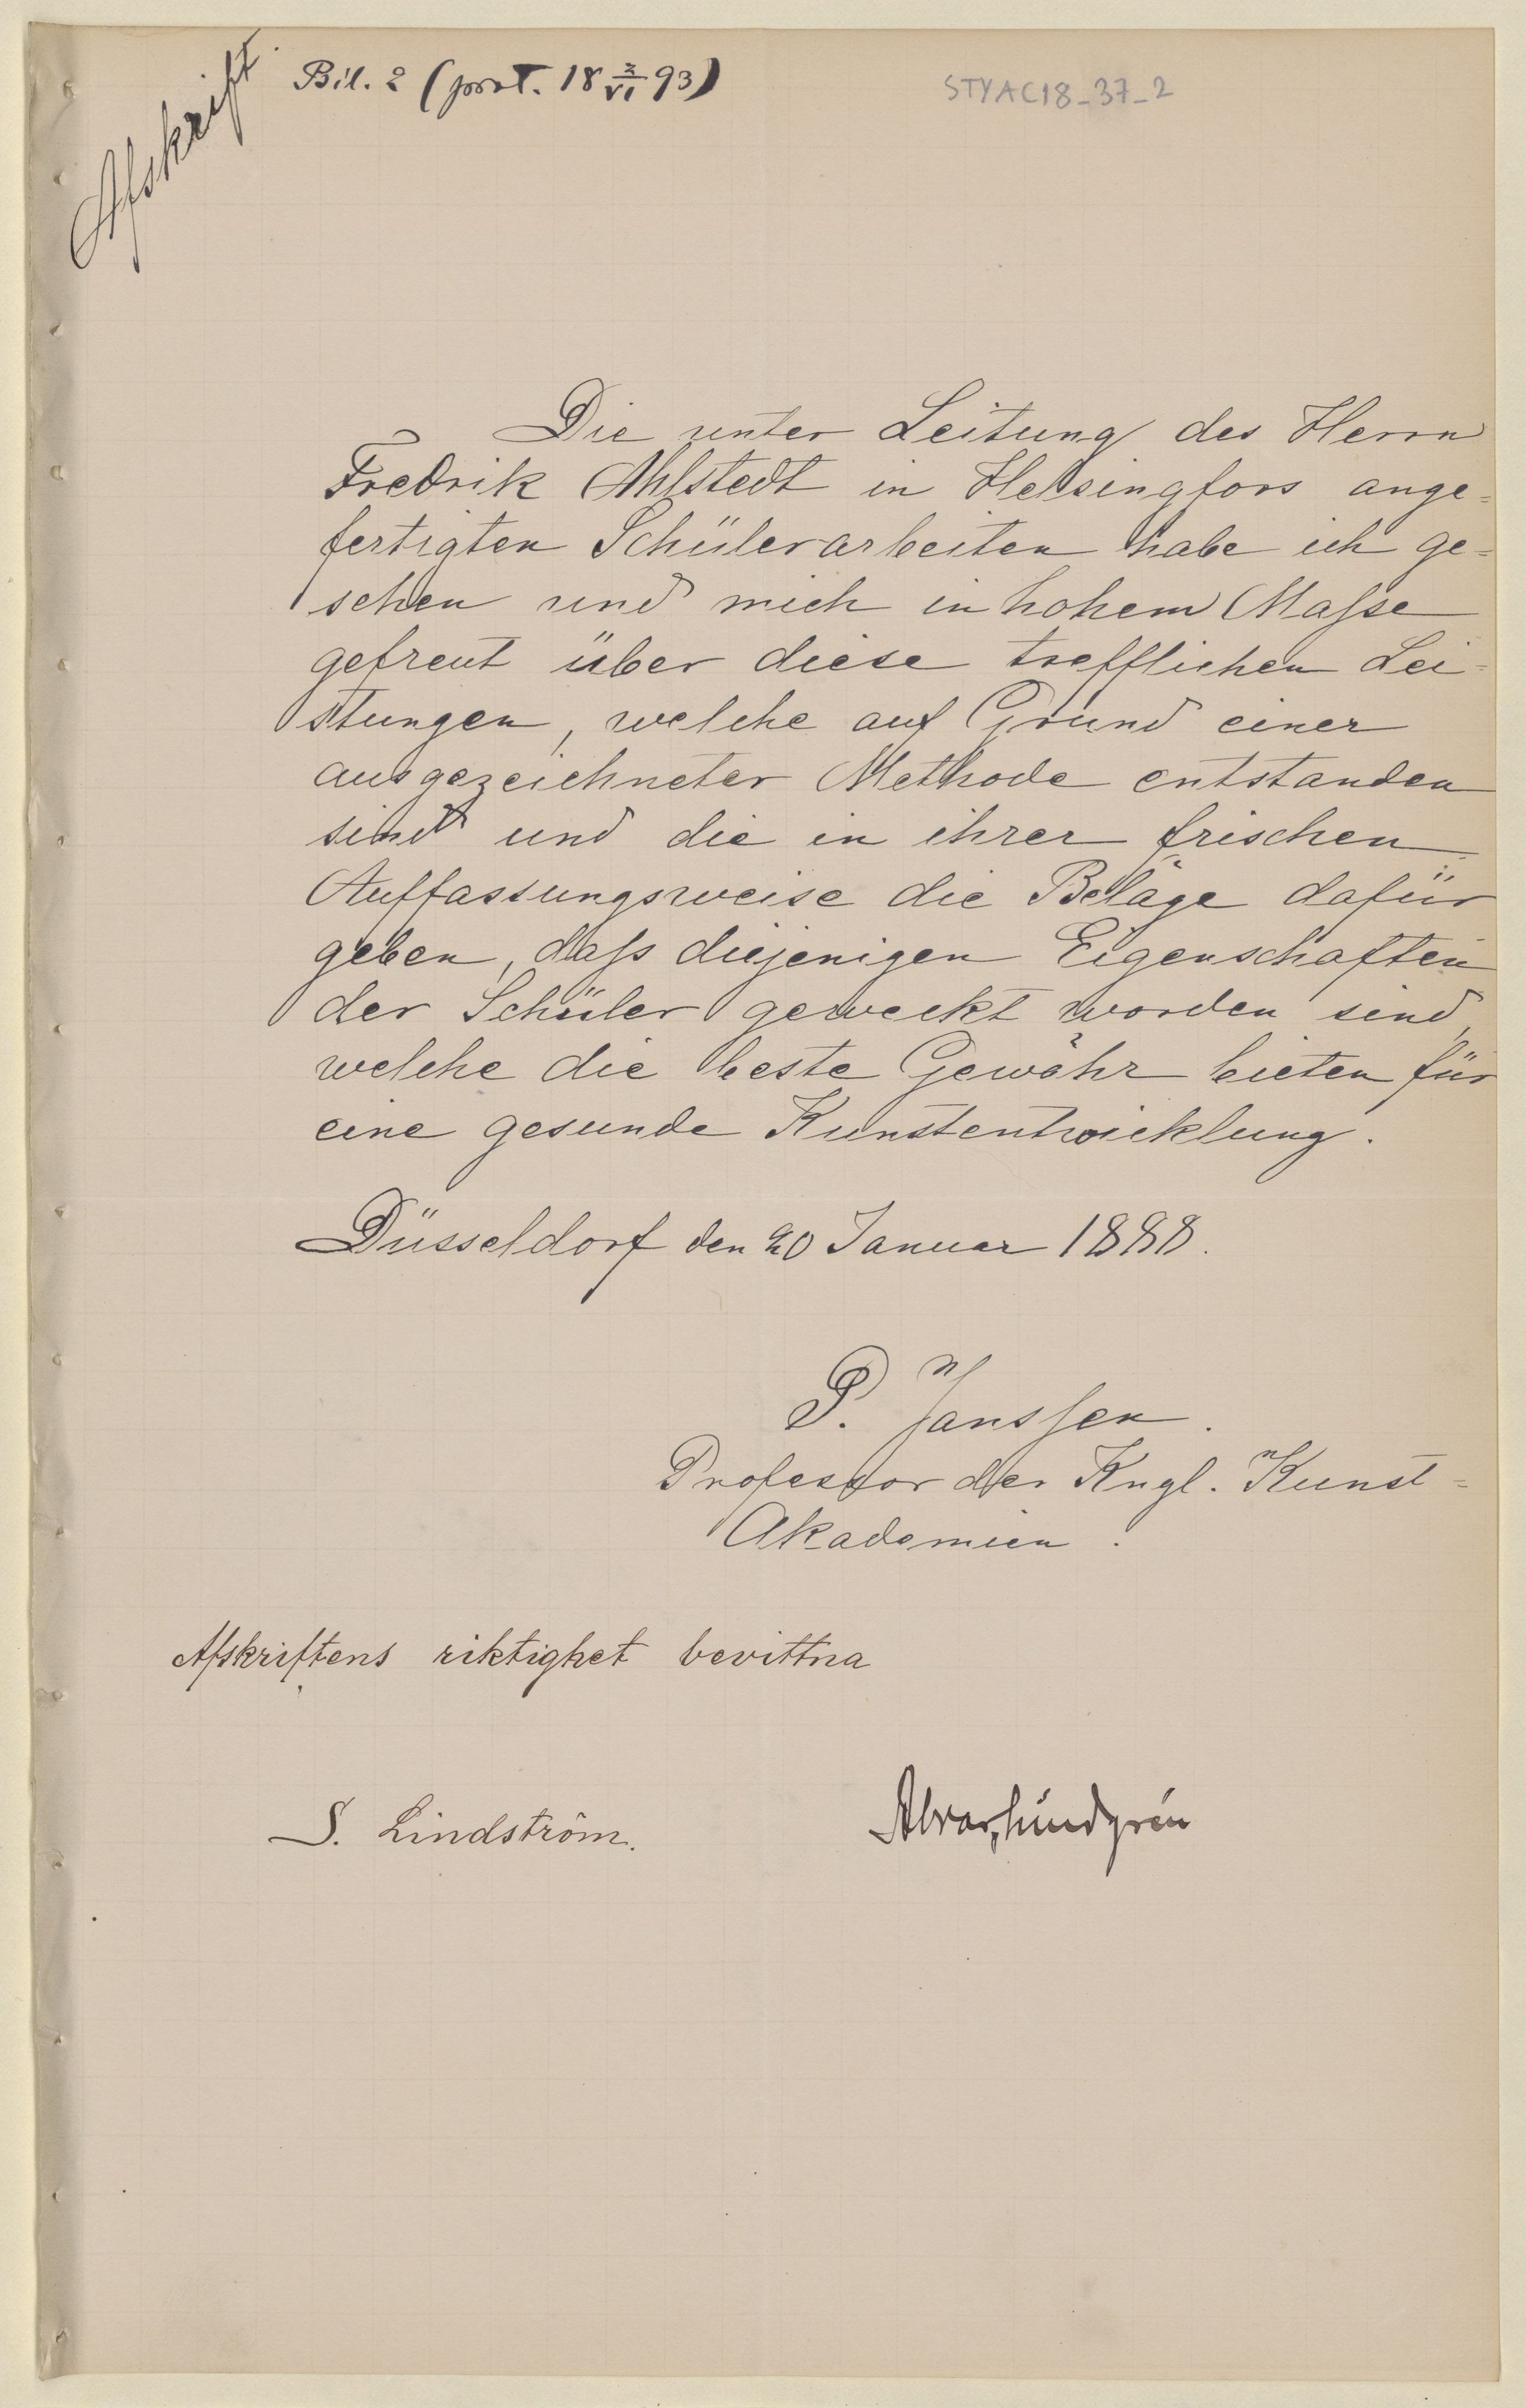 Afskrift
Bil. 2 (prot. 18 2/VI 93)
STYAC18_37_2
Die unter Leitung des Herrn
Fredrik Ahlstedt in Helsingfors ange=
fertigten Schülerarbeiten habe ich ge=
sehen und mich in hohem Maſse
gefreut über diese trefflichen Lei=
stungen, welche auf Grund einer
ausgezeichneter Methode entstanden
sind und die in ihrer frischen
Auffassungsweise die Beläge dafür
geben, daſs diejenigen Eigenschaften
der Schüler geweckt worden sind,
welche die beste Gewähr bieten für
eine gesunde Kunstentwicklung.
Düsseldorf den 20 Januar 1888.
P. Jansſen.
Professor der Kngl. Kunst=
Akademien.
Afskriftens riktighet bevittna
S. Lindström.
Alvar Lindgrén